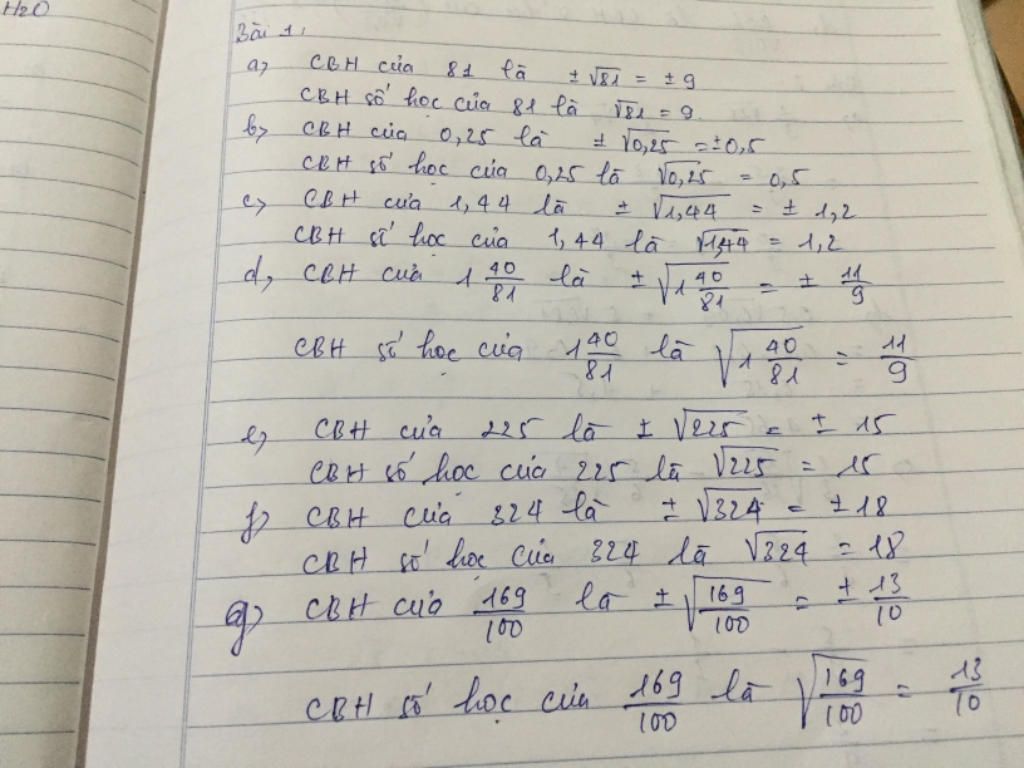 H2O
Bài 1:
a) CBH của 81 là ±√81 = ±9
CBH số học của 81 là √81 = 9.
b) CBH của 0,25 là ±√0,25 = ±0,5
CBH số học của 0,25 là √0,25 = 0,5
c) CBH của 1,44 là ±√1,44 = ± 1,2
CBH số học của 1,44 là √1,44 = 1,2
d) CBH của 1 40/81 là ±√(1 40/81) = ± 11/9
CBH số học của 1 40/81 là √(1 40/81) = 11/9
e) CBH của 225 là ±√225 = ± 15
CBH số học của 225 là √225 = 15
f) CBH của 324 là ±√324 = ±18
CBH số học của 324 là √324 = 18
g) CBH của 169/100 là ±√(169/100) = ± 13/10
CBH số học của 169/100 là √(169/100) = 13/10